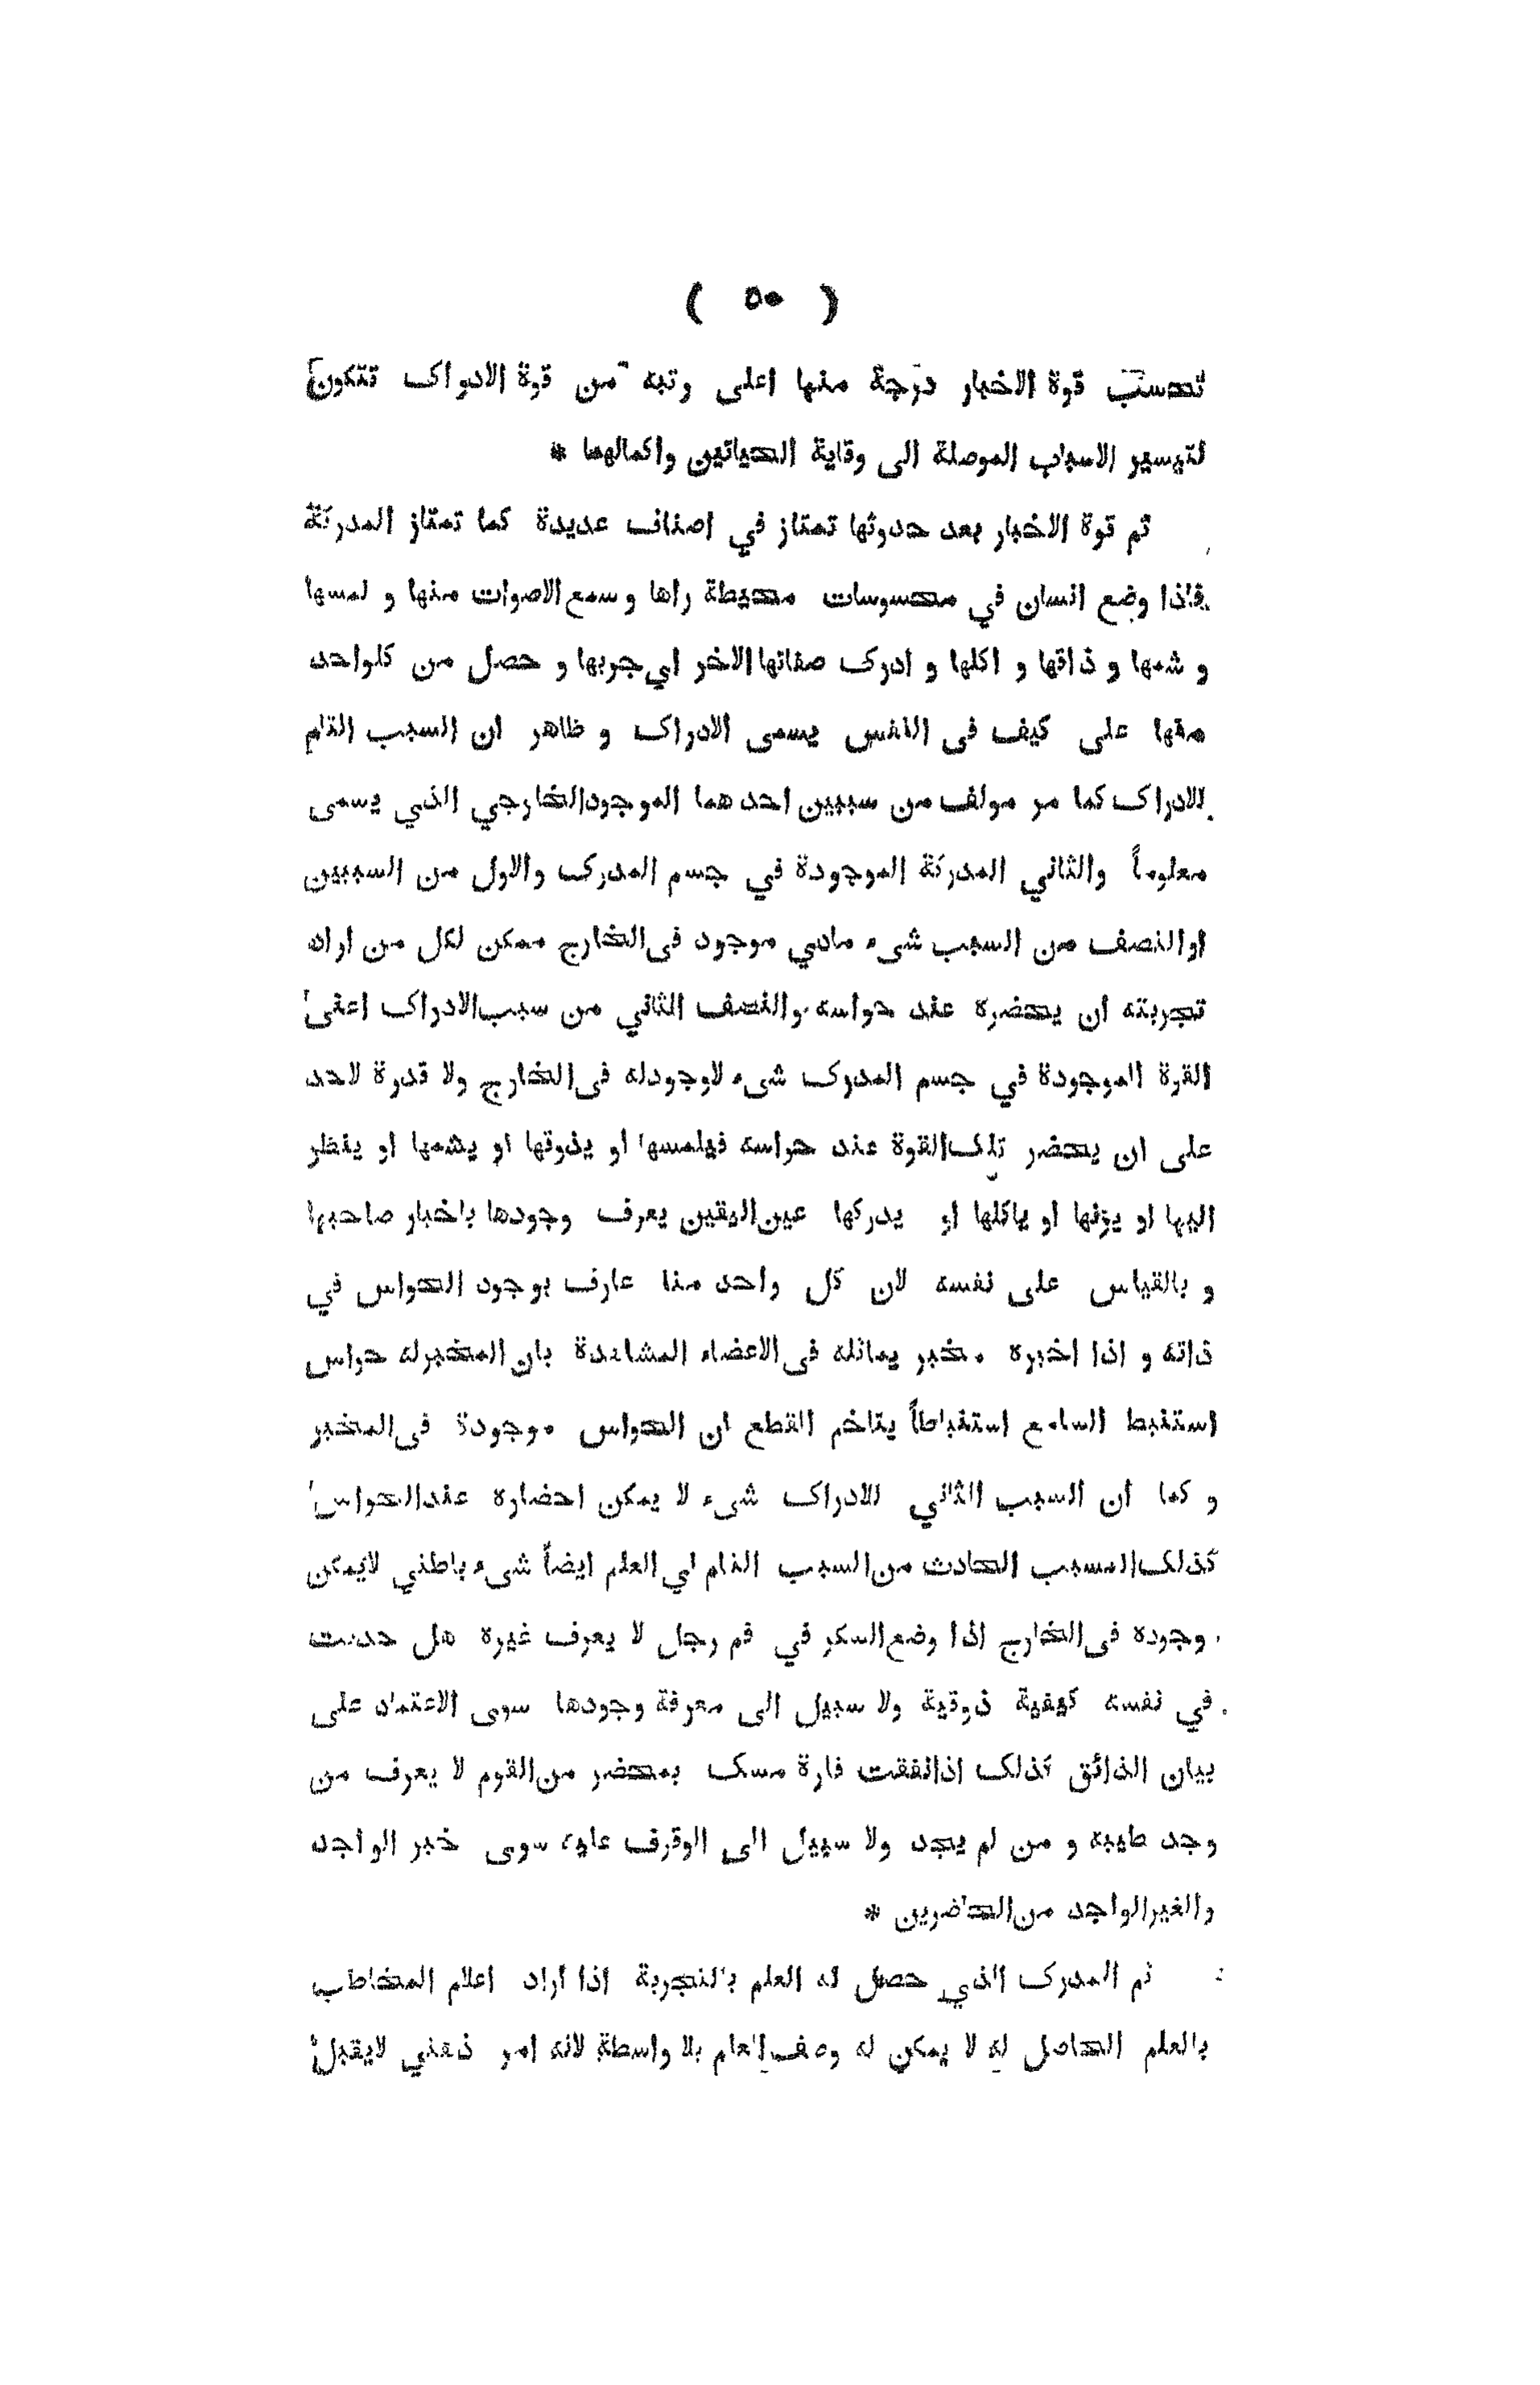 ( ٥٠ )
تحسب قوة الاخبار درجة منها اعلى رتبه من قوة الادراك تتكون
لتيسير الاسباب الموصلة الى وقاية الحياتين واكمالهما *
ثم قوة الاخبار بعد حدوثها تمتاز في اصناف عديدة كما تمتاز المدركة
فاذا وضع انسان في محسوسات محيطة راها و سمع الاصوات منها و لمسها
و شمها و ذاقها و اكلها و ادرك صفاتها الاخر اي جربها و حصل من كلواحد
منها على كيف فى النفس يسمى الادراك و ظاهر ان السبب التام
للادراك كما مر مولف من سببين احدهما الموجود الخارجي الذي يسمى
معلوماً والثاني المدركة الموجودة في جسم المدرك والاول من السببين
او النصف من السبب شىء مادي موجود فى الخارج ممكن لكل من اراد
تجربته ان يحضره عند حواسه والنصف الثاني من سبب الادراك اعنى
القوة الموجودة في جسم المدرك شىء لاوجودله فى الخارج ولا قدرة لاحد
على ان يحضر تلك القوة عند حواسه فيلمسها او يذوقها او يشمها او ينظر
اليها او يزنها او ياكلها او يدركها عين اليقين يعرف وجودها باخبار صاحبها
و بالقياس على نفسه لان كل واحد منا عارف بوجود الحواس في
ذاته و اذا اخبره مخبر يماثله فى الاعضاء المشاهدة بان المخبرله حواس
استنبط السامع استنباطاً يتاخم القطع ان الحواس موجودة فى المخبر
و كما ان السبب الثاني للادراك شىء لا يمكن احضاره عند الحواس
كذلك المسبب الحادث من السبب التام اي العلم ايضاً شىء باطني لايمكن
وجوده فى الخارج اذا وضع السكر في فم رجل لا يعرف غيره هل حدثت
في نفسه كيفية ذوقية ولا سبيل الى معرفة وجودها سوى الاعتماد على
بيان الذائق كذلك اذانفقت فارة مسك بمحضر من القوم لا يعرف من
وجد طيبه و من لم يجد ولا سبيل الى الوقوف عليه سوى خبر الواجد
والغير الواجد من الحاضرين *
ثم المدرك الذي حصل له العلم بالتجربة اذا اراد اعلام المخاطب
بالعلم الحاصل له لا يمكن له وصف العلم بلا واسطة لانه امر ذهني لايقبل